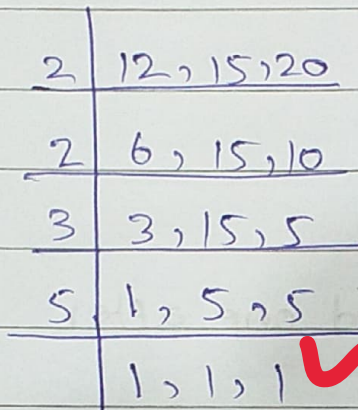 2 | 12, 15, 20
2 | 6, 15, 10
3 | 3, 15, 5
5 | 1, 5, 5
1, 1, 1